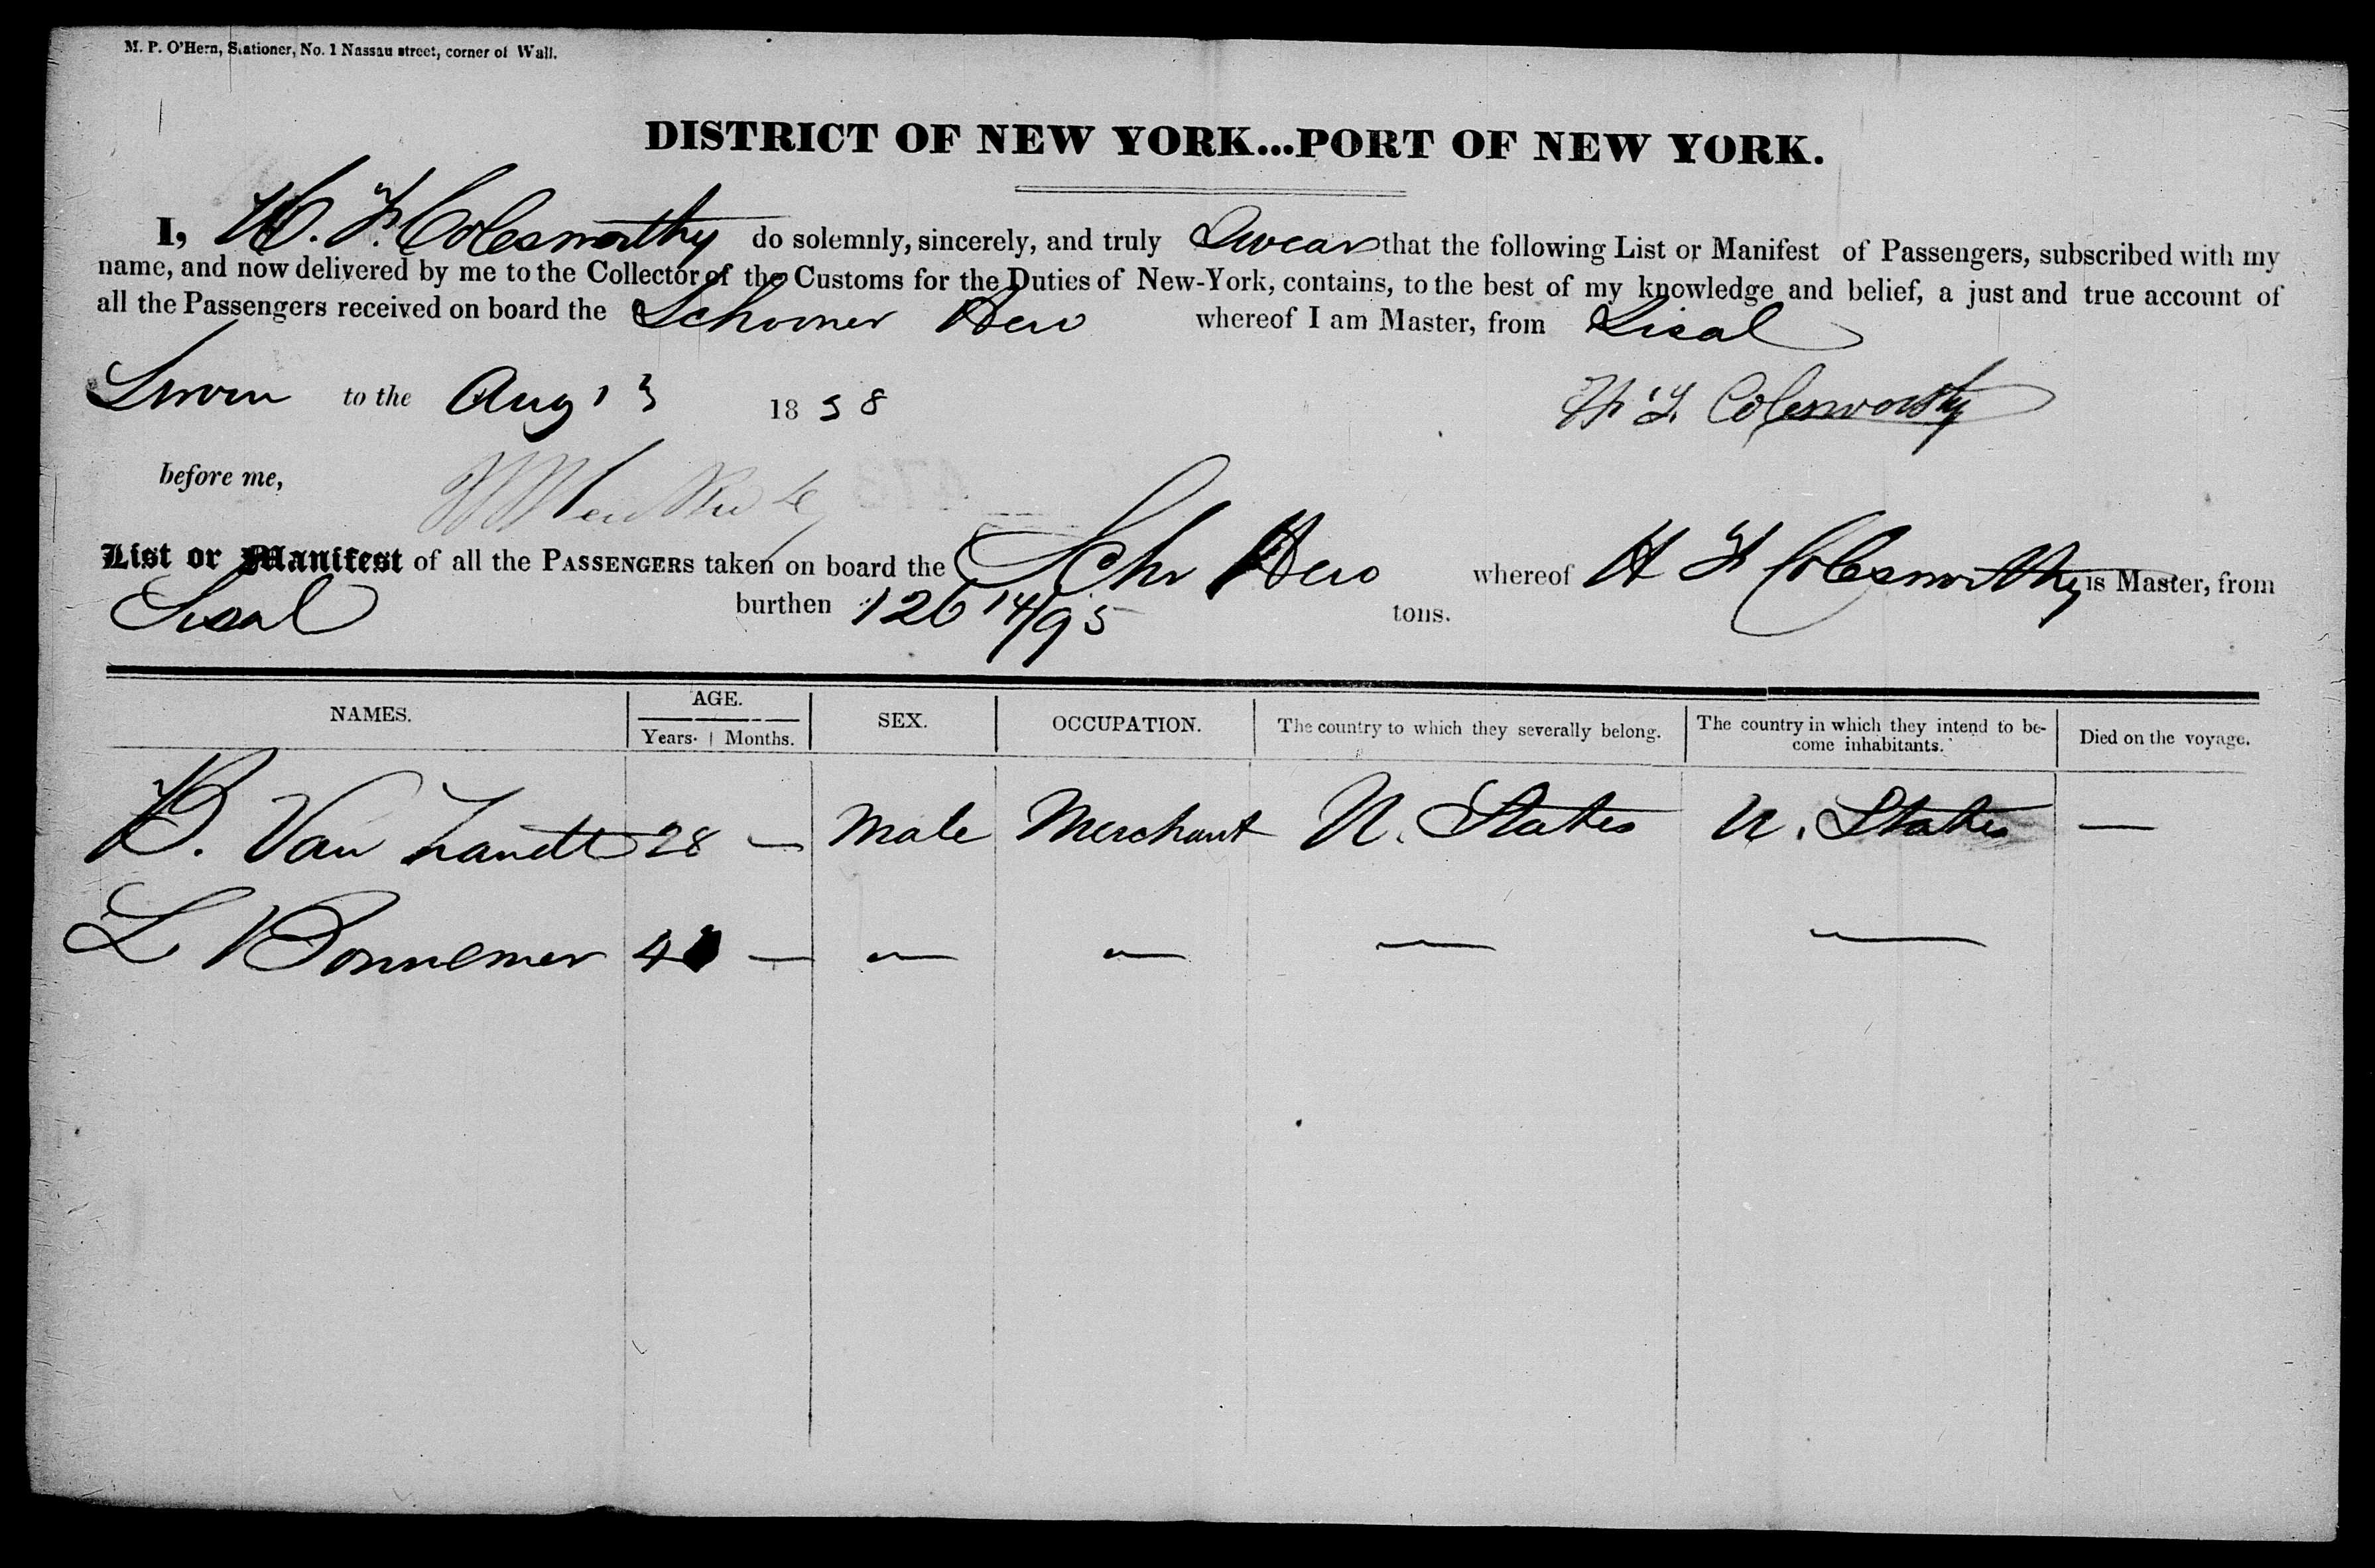 M. P. O'Hern, Stationer, No. 1 Nassau street, corner of Wall.
DISTRICT OF NEW YORK...PORT OF NEW YORK.
I, H. F. Colesworthy do solemnly, sincerely, and truly Swear that the following List or Manifest of Passengers, subscribed with my
name, and now delivered by me to the Collector of the Customs for the Duties of New-York, contains, to the best of my knowledge and belief, a just and true account of
all the Passengers received on board the Schooner Hero whereof I am Master, from Sisal
Sworn to the Aug 13 1838 H. F. Colesworthy
before me,
List or Manifest of all the PASSENGERS taken on board the Schr Hero whereof H F Colesworthy is Master, from
Sisal burthen 126 14/95 tons.
NAMES. AGE. SEX. OCCUPATION. The country to which they severally belong. The country in which they intend to be-
come inhabitants. Died on the voyage.
Years. Months.
B. Van Zandt 28 — Male Merchant U. States U. States —
L Bonnemer — — — — —